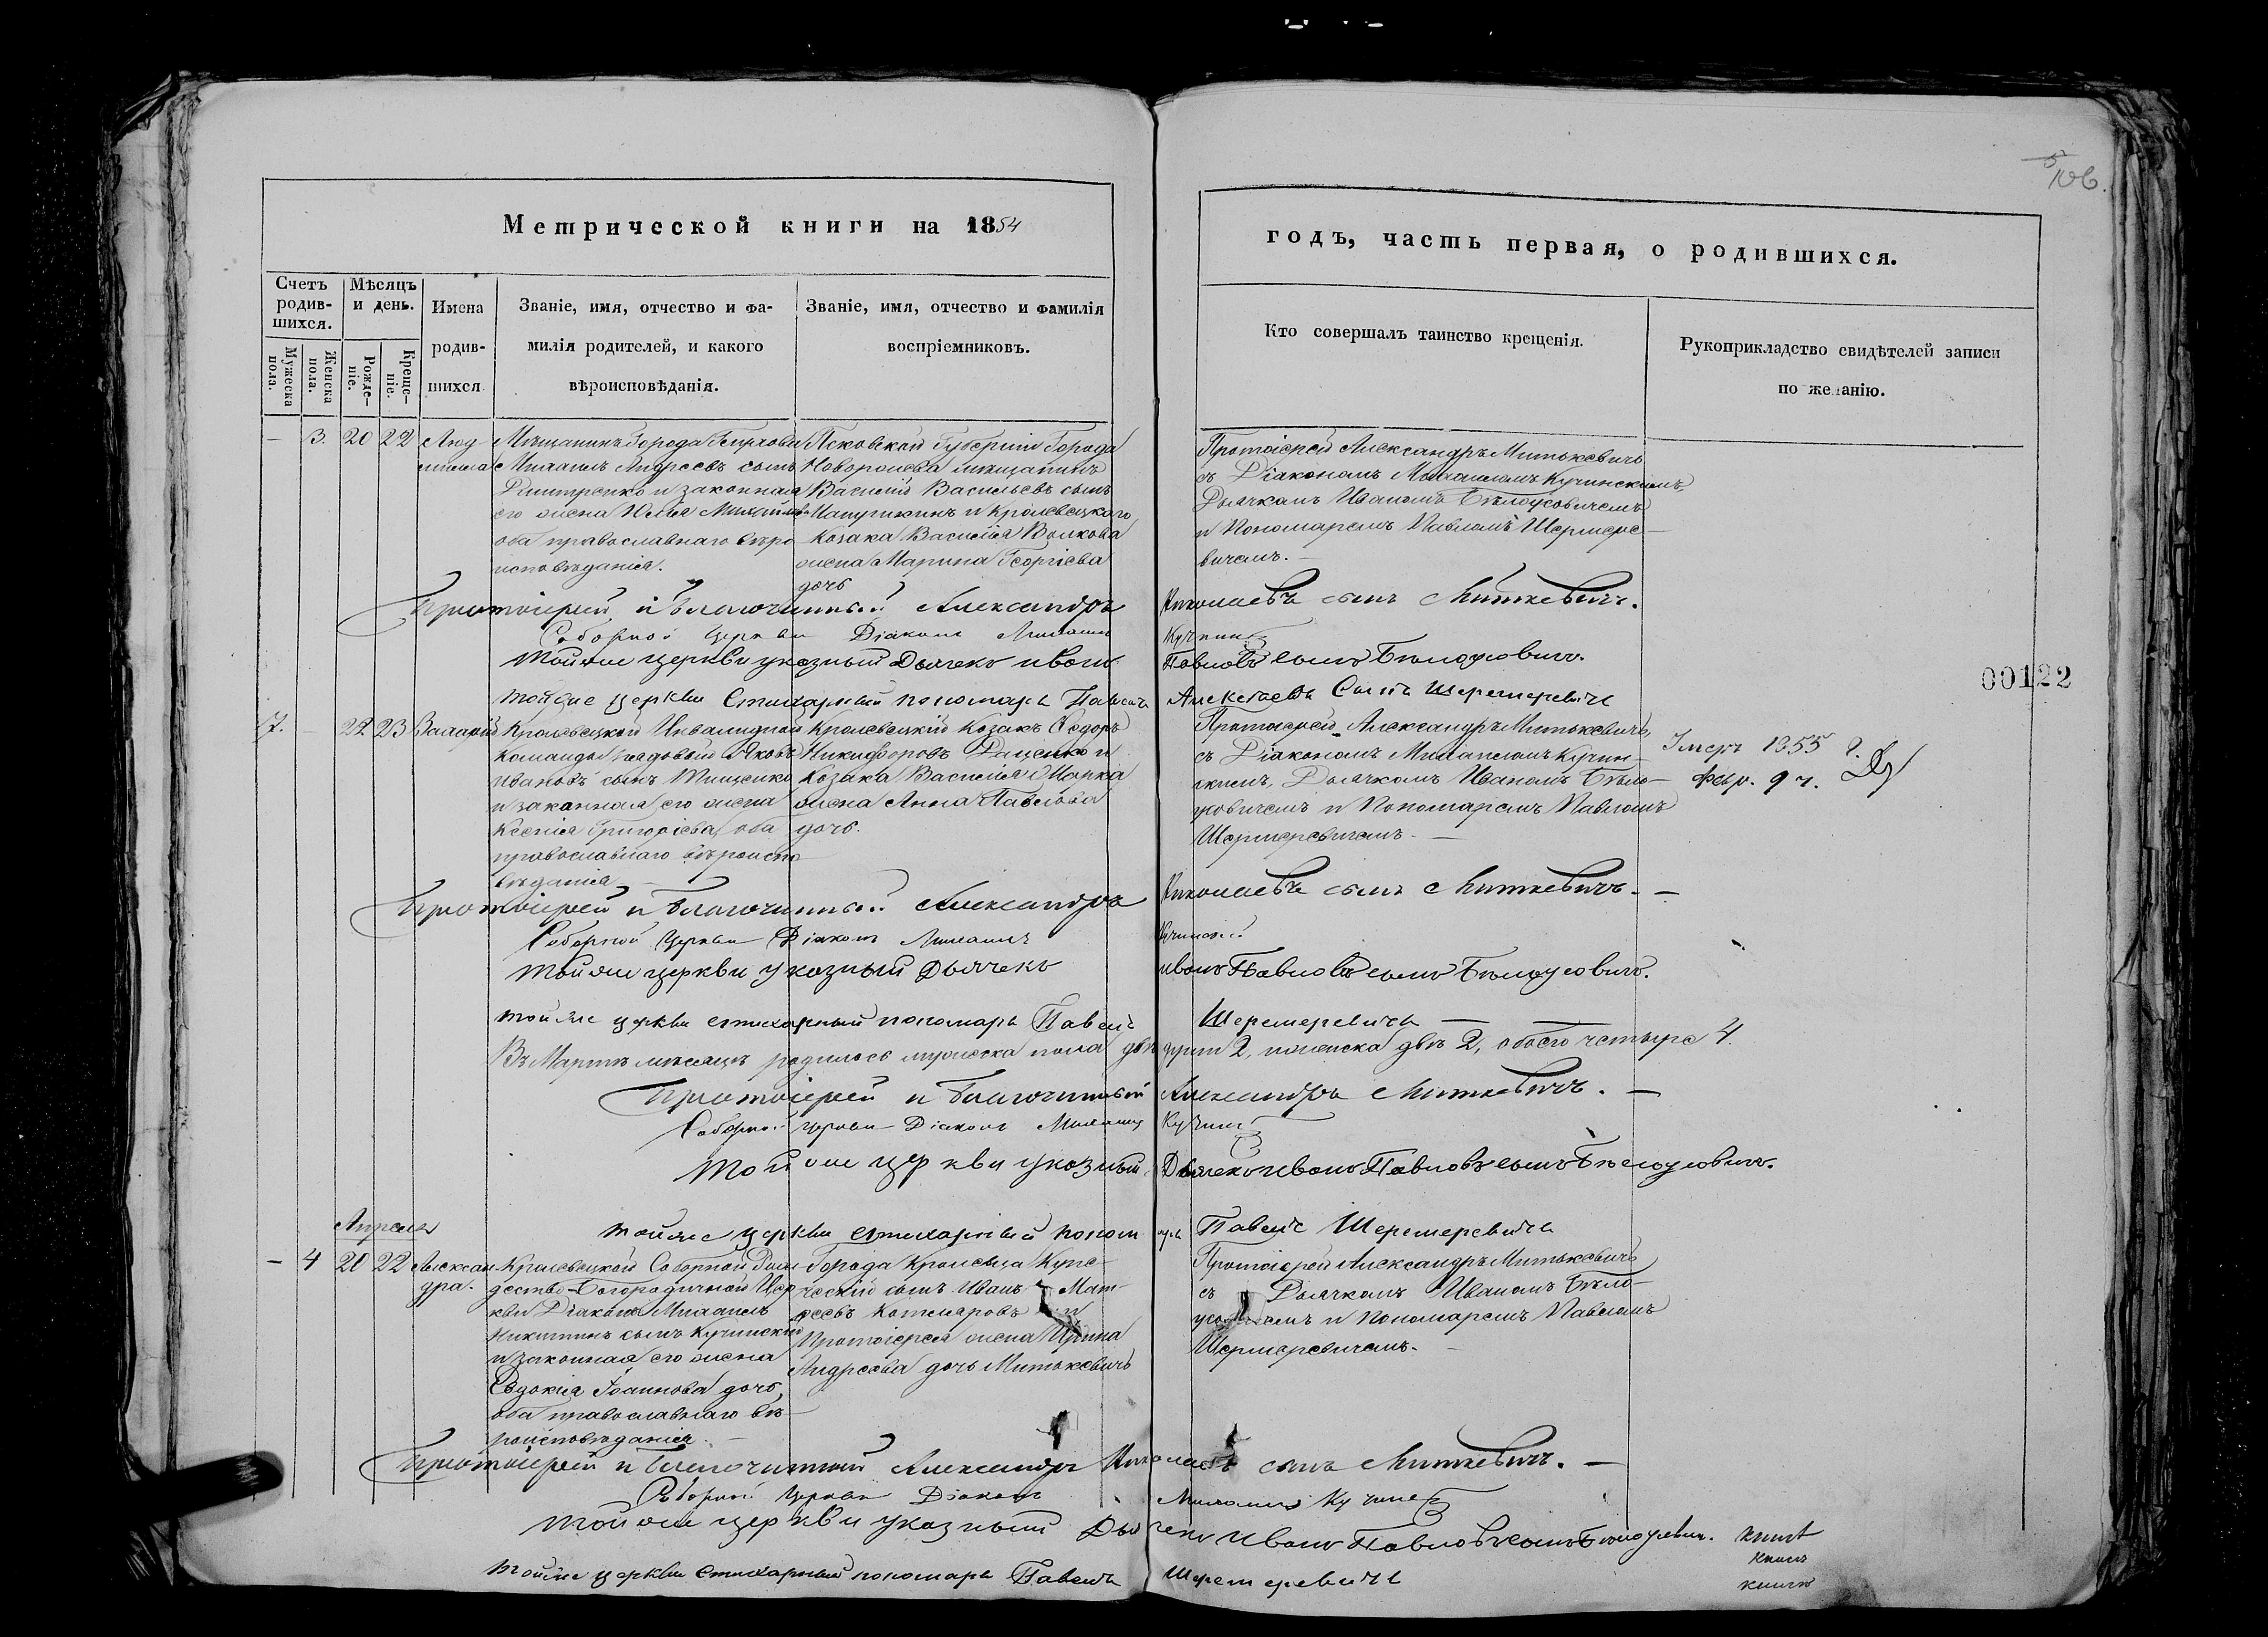 106.
Метрической книги на 1854
годъ, часть первая, о родившихся.
Счетъ родив-шихся.
Мужеска пола.
Женска пола.
Мѣсяцъ и день.
Рожде-ніе.
Креще-ніе.
Имена
родив-
шихся
Званіе, имя, отчество и фа-
милія родителей, и какого
вѣроисповѣданія.
Званіе, имя, отчество и фамилія
воспріемниковъ.
Кто совершалъ таинство крещенія.
Рукоприкладство свидѣтелей записи
по желанію.
— 3. 20 22
Люд
мила
Мѣщанинъ Города
Михаилъ Андреевъ сынъ
Дмитренко и законная
его жена Юлія Михайлова
оба православнаго вѣро
исповѣданія.
Псковской Губерніи Города
Новоржева мѣщанинъ
Василій Васильевъ сынъ
и Кролевецкаго
козака Василія Волкова
жена Марина Георгіева
дочь
Протоіерей Александръ Митькевичъ
съ Діакономъ Михаиломъ Кучинскимъ,
Дьячкомъ Иваномъ Бѣлоусовичемъ
и Пономаремъ Павломъ Шермере-
вичемъ. —
Протоіерей и Благочинный Александръ Николаевъ сынъ Миткевичъ.
Соборной Церкви Діаконъ Михаилъ
Тойже церкви указный Дьячекъ Иванъ Павловъ сынъ Бѣлоусовичъ.
тойже церкви Стихарный пономарь Павелъ Алексѣевъ Сынъ Шеремеревичъ
7. 22 23
Валерій
Кролевецкой Инвалидной
Команды рядовый Яковъ
Ивановъ сынъ Тищенко
и законная его жена
Ксенія Григоріева, оба
православнаго вѣроиспо
вѣданія —
Кролевецкій Козакъ Ѳедоръ
Никифоровъ Рященко и
Козака Василія Марка
жена Анна Павлова
дочь.
Протоіерей Александръ Митькевичъ
съ Діакономъ Михаиломъ Кучин-
скимъ, Дьячкомъ Иваномъ Бѣло-
усовичемъ и Пономаремъ Павломъ
Шермеревичемъ. —
Умеръ 1855 г.
Февр. 9 ч.
00122
Протоіерей и Благочинный Александръ Николаевъ сынъ Миткевичъ. —
Соборной Церкви Діаконъ Михаилъ Кучинскій
Тойже церкви указный Дьячекъ Иванъ Павловъ сынъ Бѣлоусовичъ.
тойже церкви стихарный пономарь Павелъ Шеремеревичъ —
Въ Мартѣ мѣсяцѣ родилось мужеска пола два 2, женска двѣ 2, обоего четыре 4.
Протоіерей и Благочинный Александръ Миткевичъ. —
Соборной Церкви Діаконъ Михаилъ
Тойже церкви указный Дьячекъ Иванъ Павловъ сынъ Бѣлоусовичъ.
тойже церкви стихарный пономарь Павелъ Шеремеревичъ
Апреля
— 4 20 22
Алексан
дра.
Кролевецкой Соборной Рож-
дество-Богородичной Цер
кви Діаконъ Михаилъ
Никитинъ сынъ Кучинскій
и законная его жена
Евдокія Іоаннова дочь,
оба православнаго вѣ-
роисповѣданія. —
Города Кролевца Купе-
ческій сынъ Иванъ Мат-
ѳеевъ Котляровъ и
Протоіерея жена Ирина
Андреева дочь Митькевичъ
Протоіерей Александръ Митькевичъ
съ Дьячкомъ Иваномъ Бѣло-
усовичемъ и Пономаремъ Павломъ
Шермеревичемъ. —
Протоіерей и Благочинный Александръ Николаевъ сынъ Миткевичъ. —
Соборной Церкви Діаконъ Михаилъ
Тойже церкви указный Дьячекъ Иванъ Павловъ сынъ Бѣлоусовичъ.
тойже церкви Стихарный пономарь Павелъ Шеремеревичъ